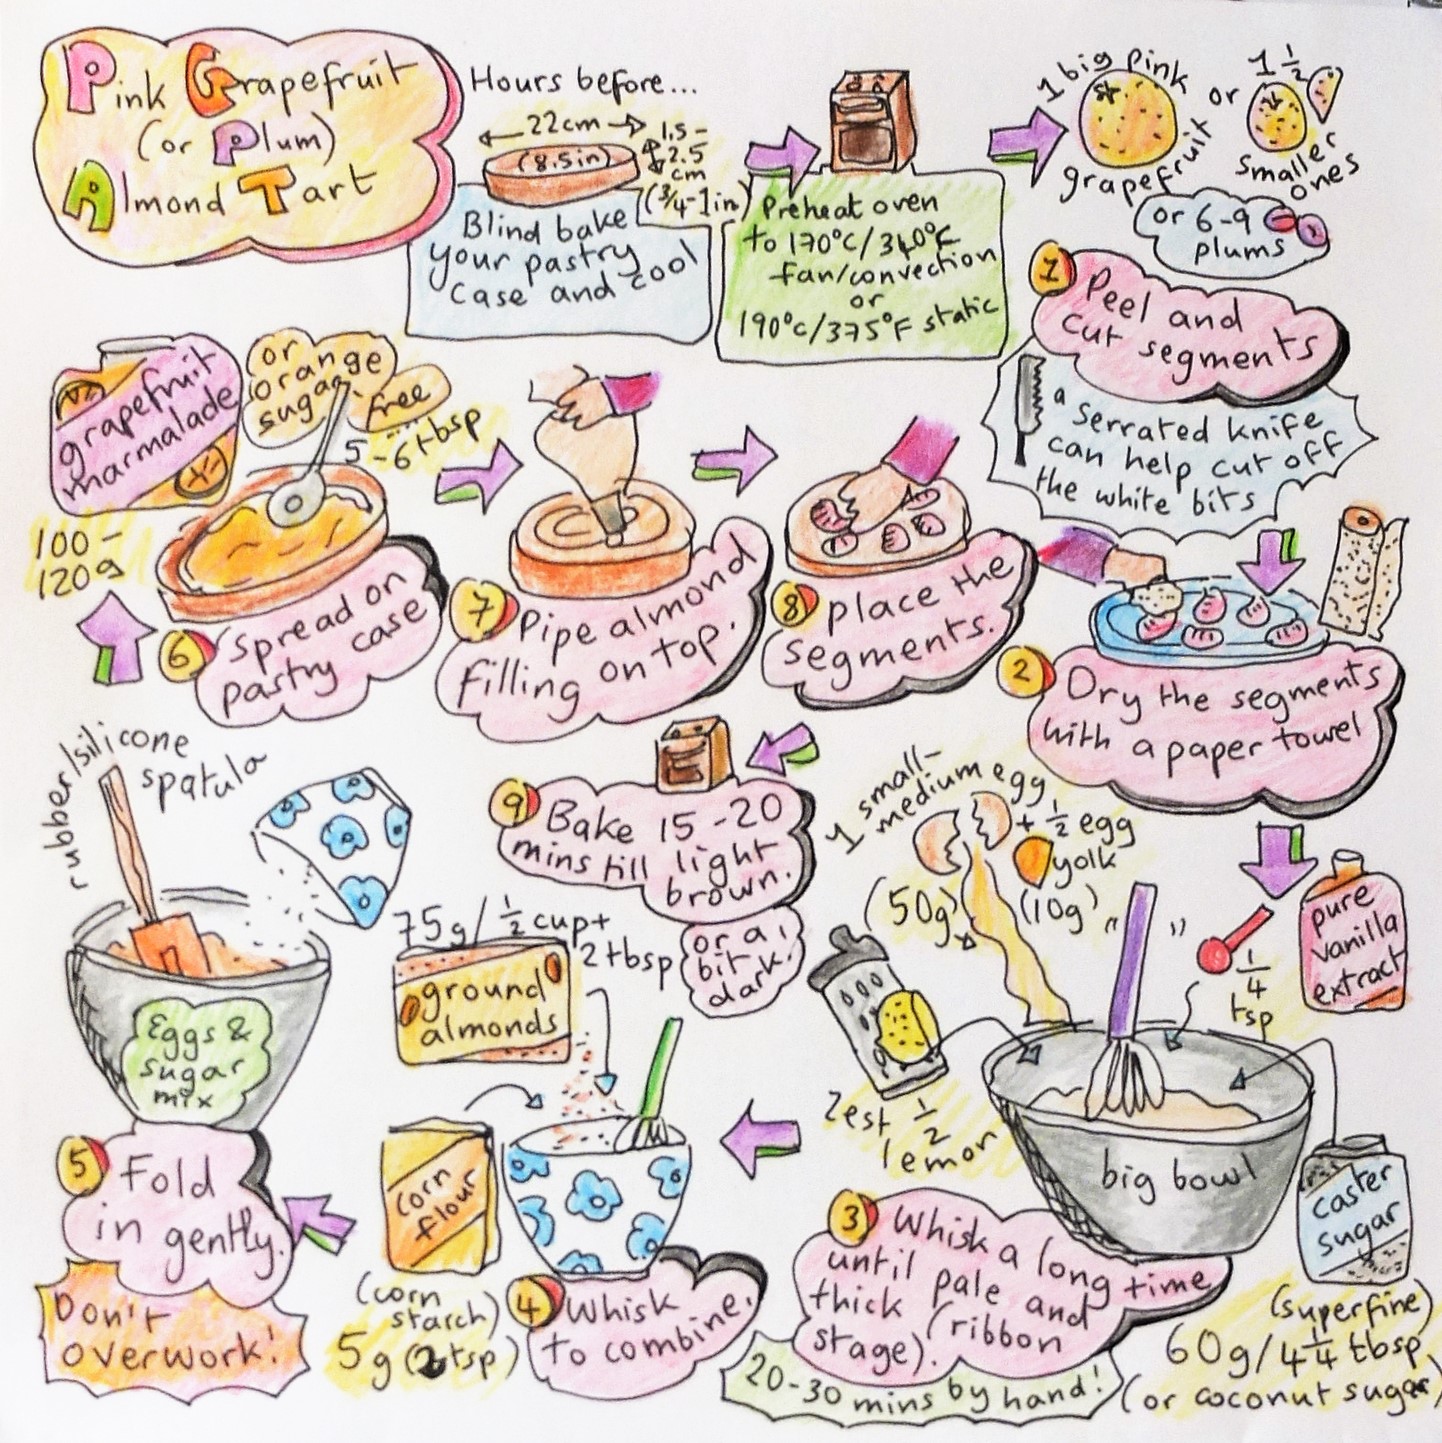 Pink Grapefruit
(or Plum)
Almond Tart
Hours before...
22cm
(8.5in)
1.5-
2.5
cm
(3/4-1in)
Blind bake
your pastry
case and cool
Preheat oven
to 170°C/340°F
fan/convection
or
190°C/375°F static
1 big pink
grapefruit
or
1 1/2
smaller
ones
or 6-9
plums
1
Peel and
cut segments
a
serrated knife
can help cut off
the white bits
2
Dry the segments
with a paper towel
1 small-
medium egg
(50g)
+ 1/2 egg
yolk
(10g)
pure
vanilla
extract
1/4
tsp
Zest 1/2
lemon
big bowl
caster
sugar
(superfine)
60g/4 1/4 tbsp
(or coconut sugar)
3
Whisk a long time
until pale and
thick (ribbon
stage).
20-30 mins by hand!
75g/1/2 cup+
2tbsp
ground
almonds
corn
flour
(corn
starch)
5g (2 tsp)
4
Whisk
to combine.
rubber/silicone
spatula
Eggs &
sugar
mix
5
Fold
in gently.
Don't
overwork!
grapefruit
marmalade
or
orange
sugar
free
5-6tbsp
100-
120g
6
Spread on
pastry case
7
Pipe almond
filling on top.
8
place the
segments.
9
Bake 15-20
mins till light
brown.
or a
bit
dark!